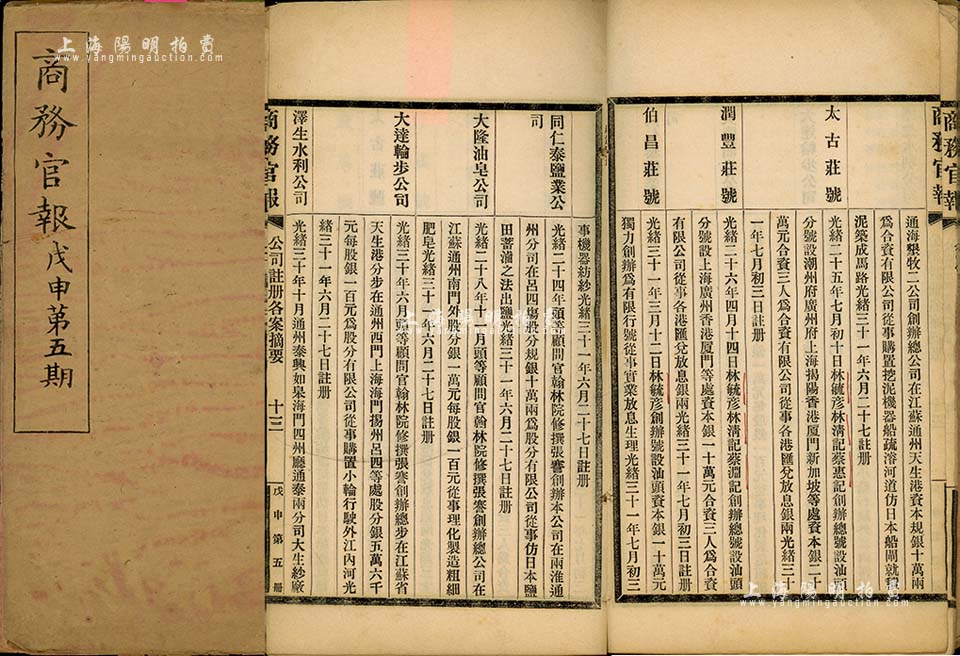 商務官報戊申第五期
商務官報
通海墾牧二公司創辦總公司在江蘇通州天生港資本規銀十萬兩
爲合資有限公司從事購置挖泥機器船疏濬河道仿日本船閘就
泥築成馬路光緒三十一年六月二十七日註册
太古莊號
光緒二十五年七月初十日林毓彥林淸記蔡惠記創辦總號設汕頭
分號設潮州府廣州府上海揭陽香港厦門新加坡等處資本銀二十
萬元合資三人爲合資有限公司從事各港匯兌放息銀兩光緒三十
一年七月初三日註册
潤豐莊號
光緒二十六年四月十四日林毓彥林淸記蔡淵記創辦總號設汕頭
分號設上海廣州香港厦門等處資本銀一十萬元合資三人爲合資
有限公司從事各港匯兌放息銀兩光緒三十一年七月初三日註册
伯昌莊號
光緒三十一年三月十二日林毓彥創辦號設汕頭資本銀一十萬元
獨力創辦爲有限行號從事實業放息生理光緒三十一年七月初三
事機器紡紗光緒三十一年六月二十七日註册
同仁泰鹽業公司
光緒二十四年頭等顧問官翰林院修撰張謇創辦本公司在兩淮通
州分司在呂四場股分規銀十萬兩爲股分有限公司從事仿日本鹽
田蓄滷之法出鹽光緒三十一年六月二十七日註册
大隆油皂公司
光緒二十八年十一月頭等顧問官翰林院修撰張謇創辦總公司在
江蘇通州南門外股分銀一萬元每股銀一百元從事理化製造粗細
肥皂光緒三十一年六月二十七日註册
大達輪步公司
光緒三十年六月頭等顧問官翰林院修撰張謇創辦總步在江蘇省
天生港分步在通州西門上海海門揚州呂四等處股分銀五萬六千
元每股銀一百元爲股分有限公司從事購置小輪行駛外江內河光
緒三十一年六月二十七日註册
澤生水利公司
光緒三十年十月通州泰興如皋海門四州廳通泰兩分司大生紗廠
商務官報
公司註册各案摘要
十三
戊申第五册
上海陽明拍賣
www.yangmingauction.com
上海陽明拍賣
上海陽明拍賣
www.yangmingauction.com